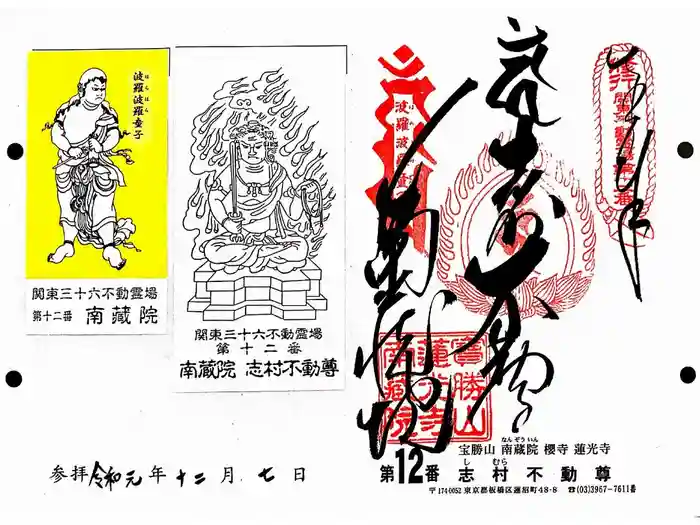 波羅波羅童子
はらはら
関東三十六不動霊場
第十二番 南蔵院
関東三十六不動霊場
第十二番
南蔵院 志村不動尊
参拝令和元年十二月七日
志村不動
南蔵院
寶勝山
蓮光寺
南藏院
なんぞういん
宝勝山 南蔵院 櫻寺 蓮光寺
しむら
第12番 志村不動尊
〒174-0052 東京都板橋区蓮沼町48-8 ☎(03)3967-7611番